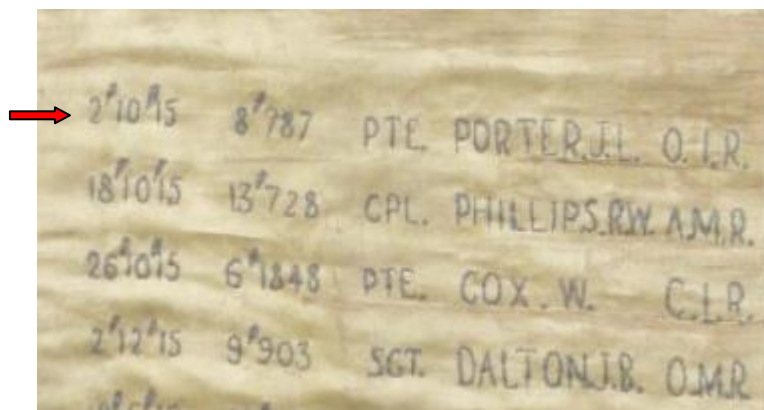 2/10/15 8/787 PTE. PORTER.J.L. O.I.R.
18/10/15 13/728 CPL. PHILLIPS.R.W. A.M.R.
26/10/15 6/1848 PTE. COX.W. C.I.R.
2/12/15 9/903 SGT. DALTON.J.B. O.M.R